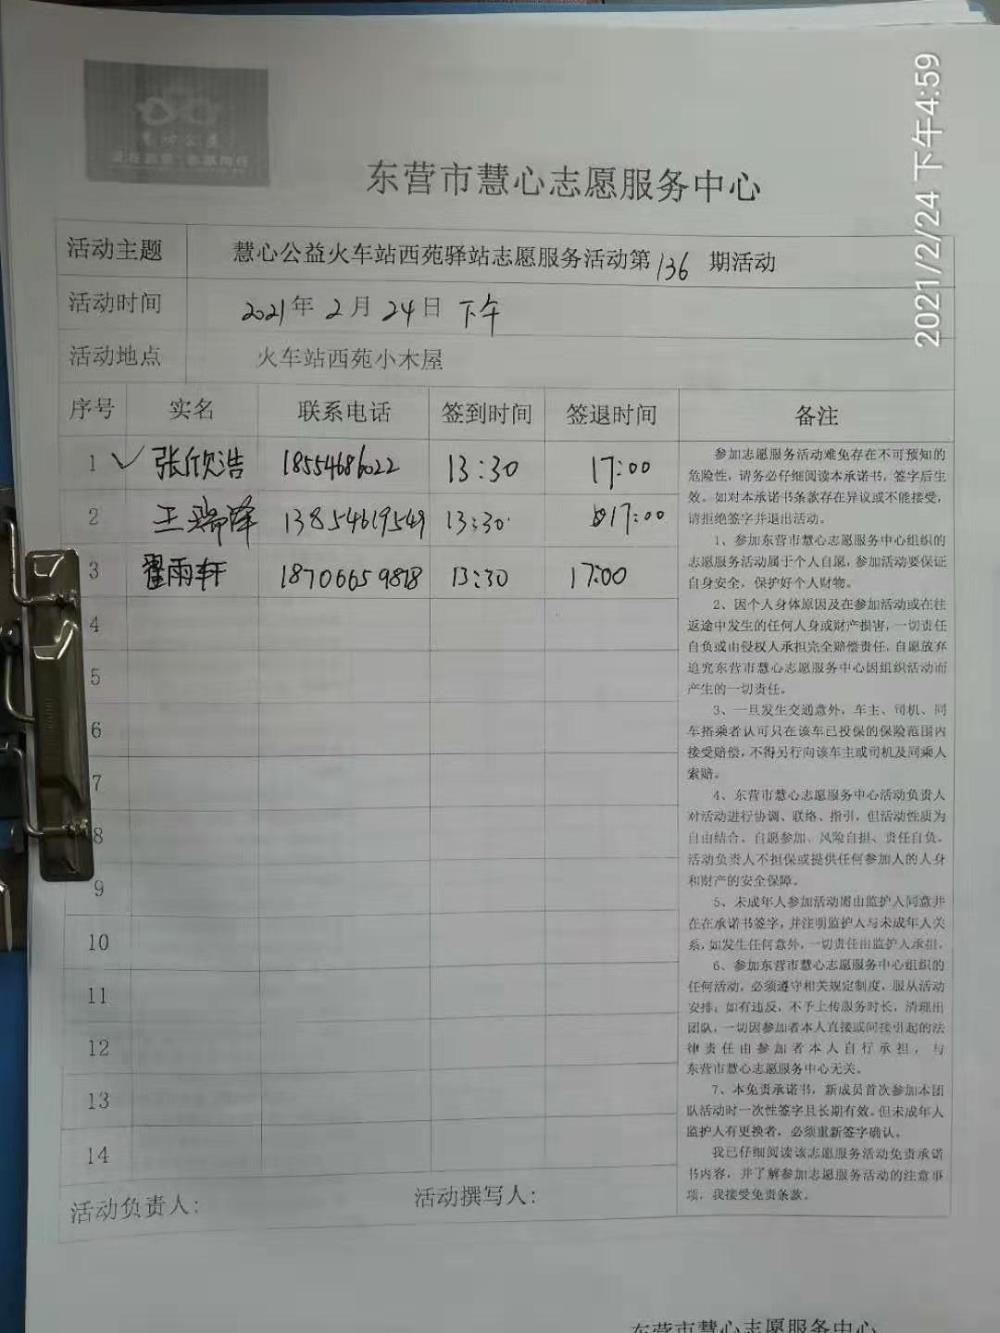 2021/2/24 下午4:59
东营市慧心志愿服务中心
活动主题 慧心公益火车站西苑驿站志愿服务活动第136期活动
活动时间 2021年2月24日 下午
活动地点 火车站西苑小木屋
序号 实名 联系电话 签到时间 签退时间 备注
1 ✓ 张欣浩 18554686022 13:30 17:00
2 王瑞泽 13854619549 13:30 17:00
3 翟雨轩 18706659818 13:30 17:00
4
5
6
7
8
9
10
11
12
13
14
参加志愿服务活动难免存在不可预知的
危险性，请务必仔细阅读本承诺书，签字后生
效。如对本承诺书条款存在异议或不能接受，
请拒绝签字并退出活动。
1、参加东营市慧心志愿服务中心组织的
志愿服务活动属于个人自愿，参加活动要保证
自身安全，保护好个人财物。
2、因个人身体原因及在参加活动或在往
返途中发生的任何人身或财产损害，一切责任
自负或由侵权人承担完全赔偿责任，自愿放弃
追究东营市慧心志愿服务中心因组织活动而
产生的一切责任。
3、一旦发生交通意外，车主、司机、同
车搭乘者认可只在该车已投保的保险范围内
接受赔偿，不得另行向该车主或司机及同乘人
索赔。
4、东营市慧心志愿服务中心活动负责人
对活动进行协调、联络、指引，但活动性质为
自由结合、自愿参加、风险自担、责任自负。
活动负责人不担保或提供任何参加人的人身
和财产的安全保障。
5、未成年人参加活动需由监护人同意并
在在承诺书签字，并注明监护人与未成年人关
系，如发生任何意外，一切责任由监护人承担。
6、参加东营市慧心志愿服务中心组织的
任何活动，必须遵守相关规定制度，服从活动
安排；如有违反，不予上传服务时长，清理出
团队，一切因参加者本人直接或间接引起的法
律责任由参加者本人自行承担，与
东营市慧心志愿服务中心无关。
7、本免责承诺书，新成员首次参加本团
队活动时一次性签字且长期有效。但未成年人
监护人有更换者，必须重新签字确认。
我已仔细阅读该志愿服务活动免责承诺
书内容，并了解参加志愿服务活动的注意事
项，我接受免责条款。
活动负责人： 活动撰写人：
东营市慧心志愿服务中心